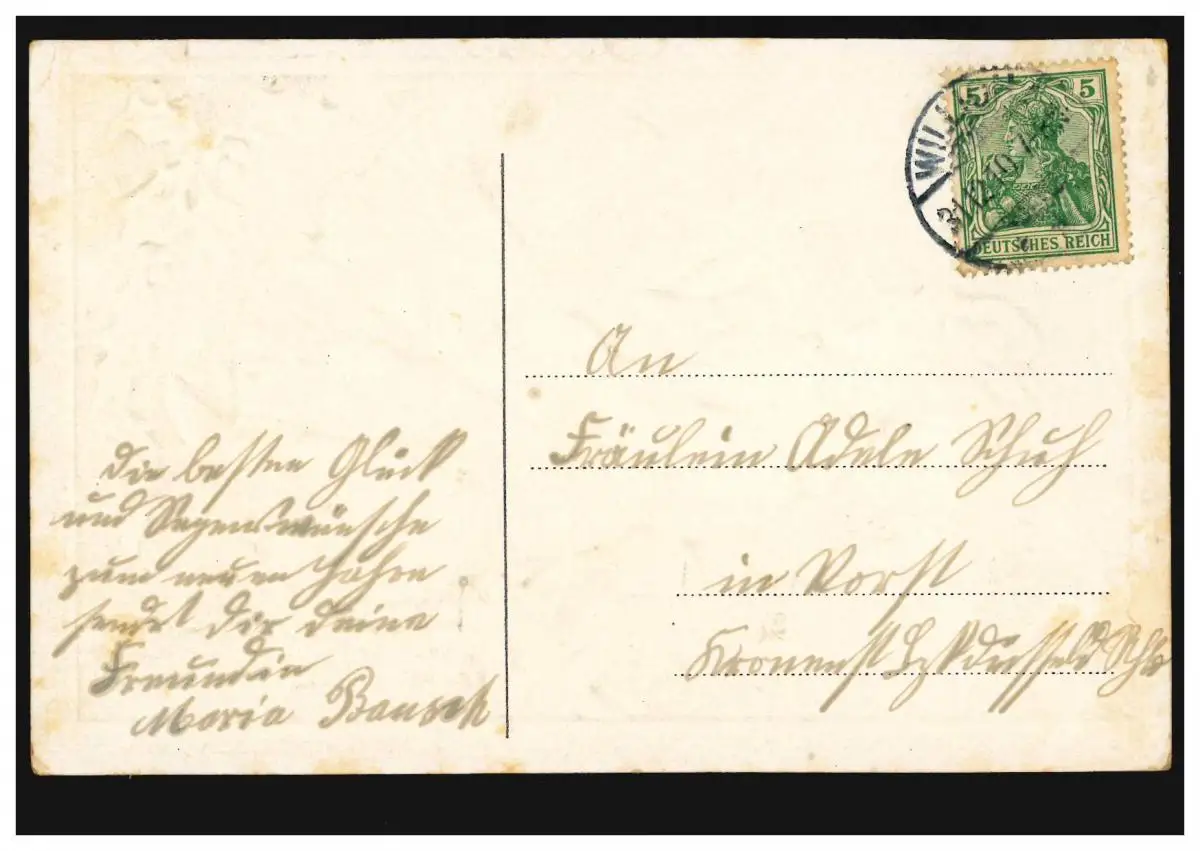 5 5
DEUTSCHES REICH
31.12.10
An
Fräulein Adele Schuh
in Vorst
Die besten Glück
und Segenswünsche
zum neuen Jahre
sendet Dir Deine
Freundin
Maria